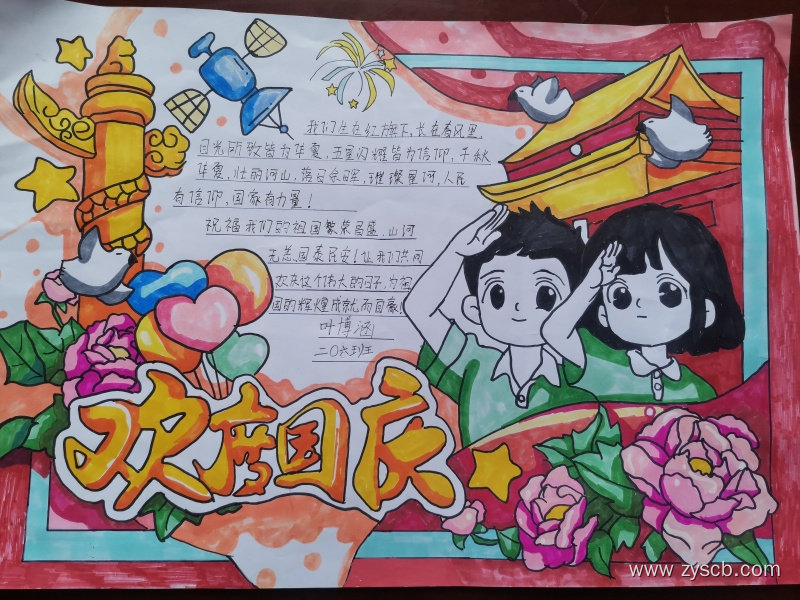 我们生在红旗下,长在春风里,
目光所致皆为华夏,五星闪耀皆为信仰,千秋
华夏,壮丽河山,落日余晖,璀璨星河,人民
有信仰,国家有力量!
祝福我们的祖国繁荣昌盛,山河
无恙,国泰民安!让我们共同
欢庆这个伟大的日子,为祖
国的辉煌成就而自豪!
叶博涵
二〇六班
欢度国庆
www.zyscb.com